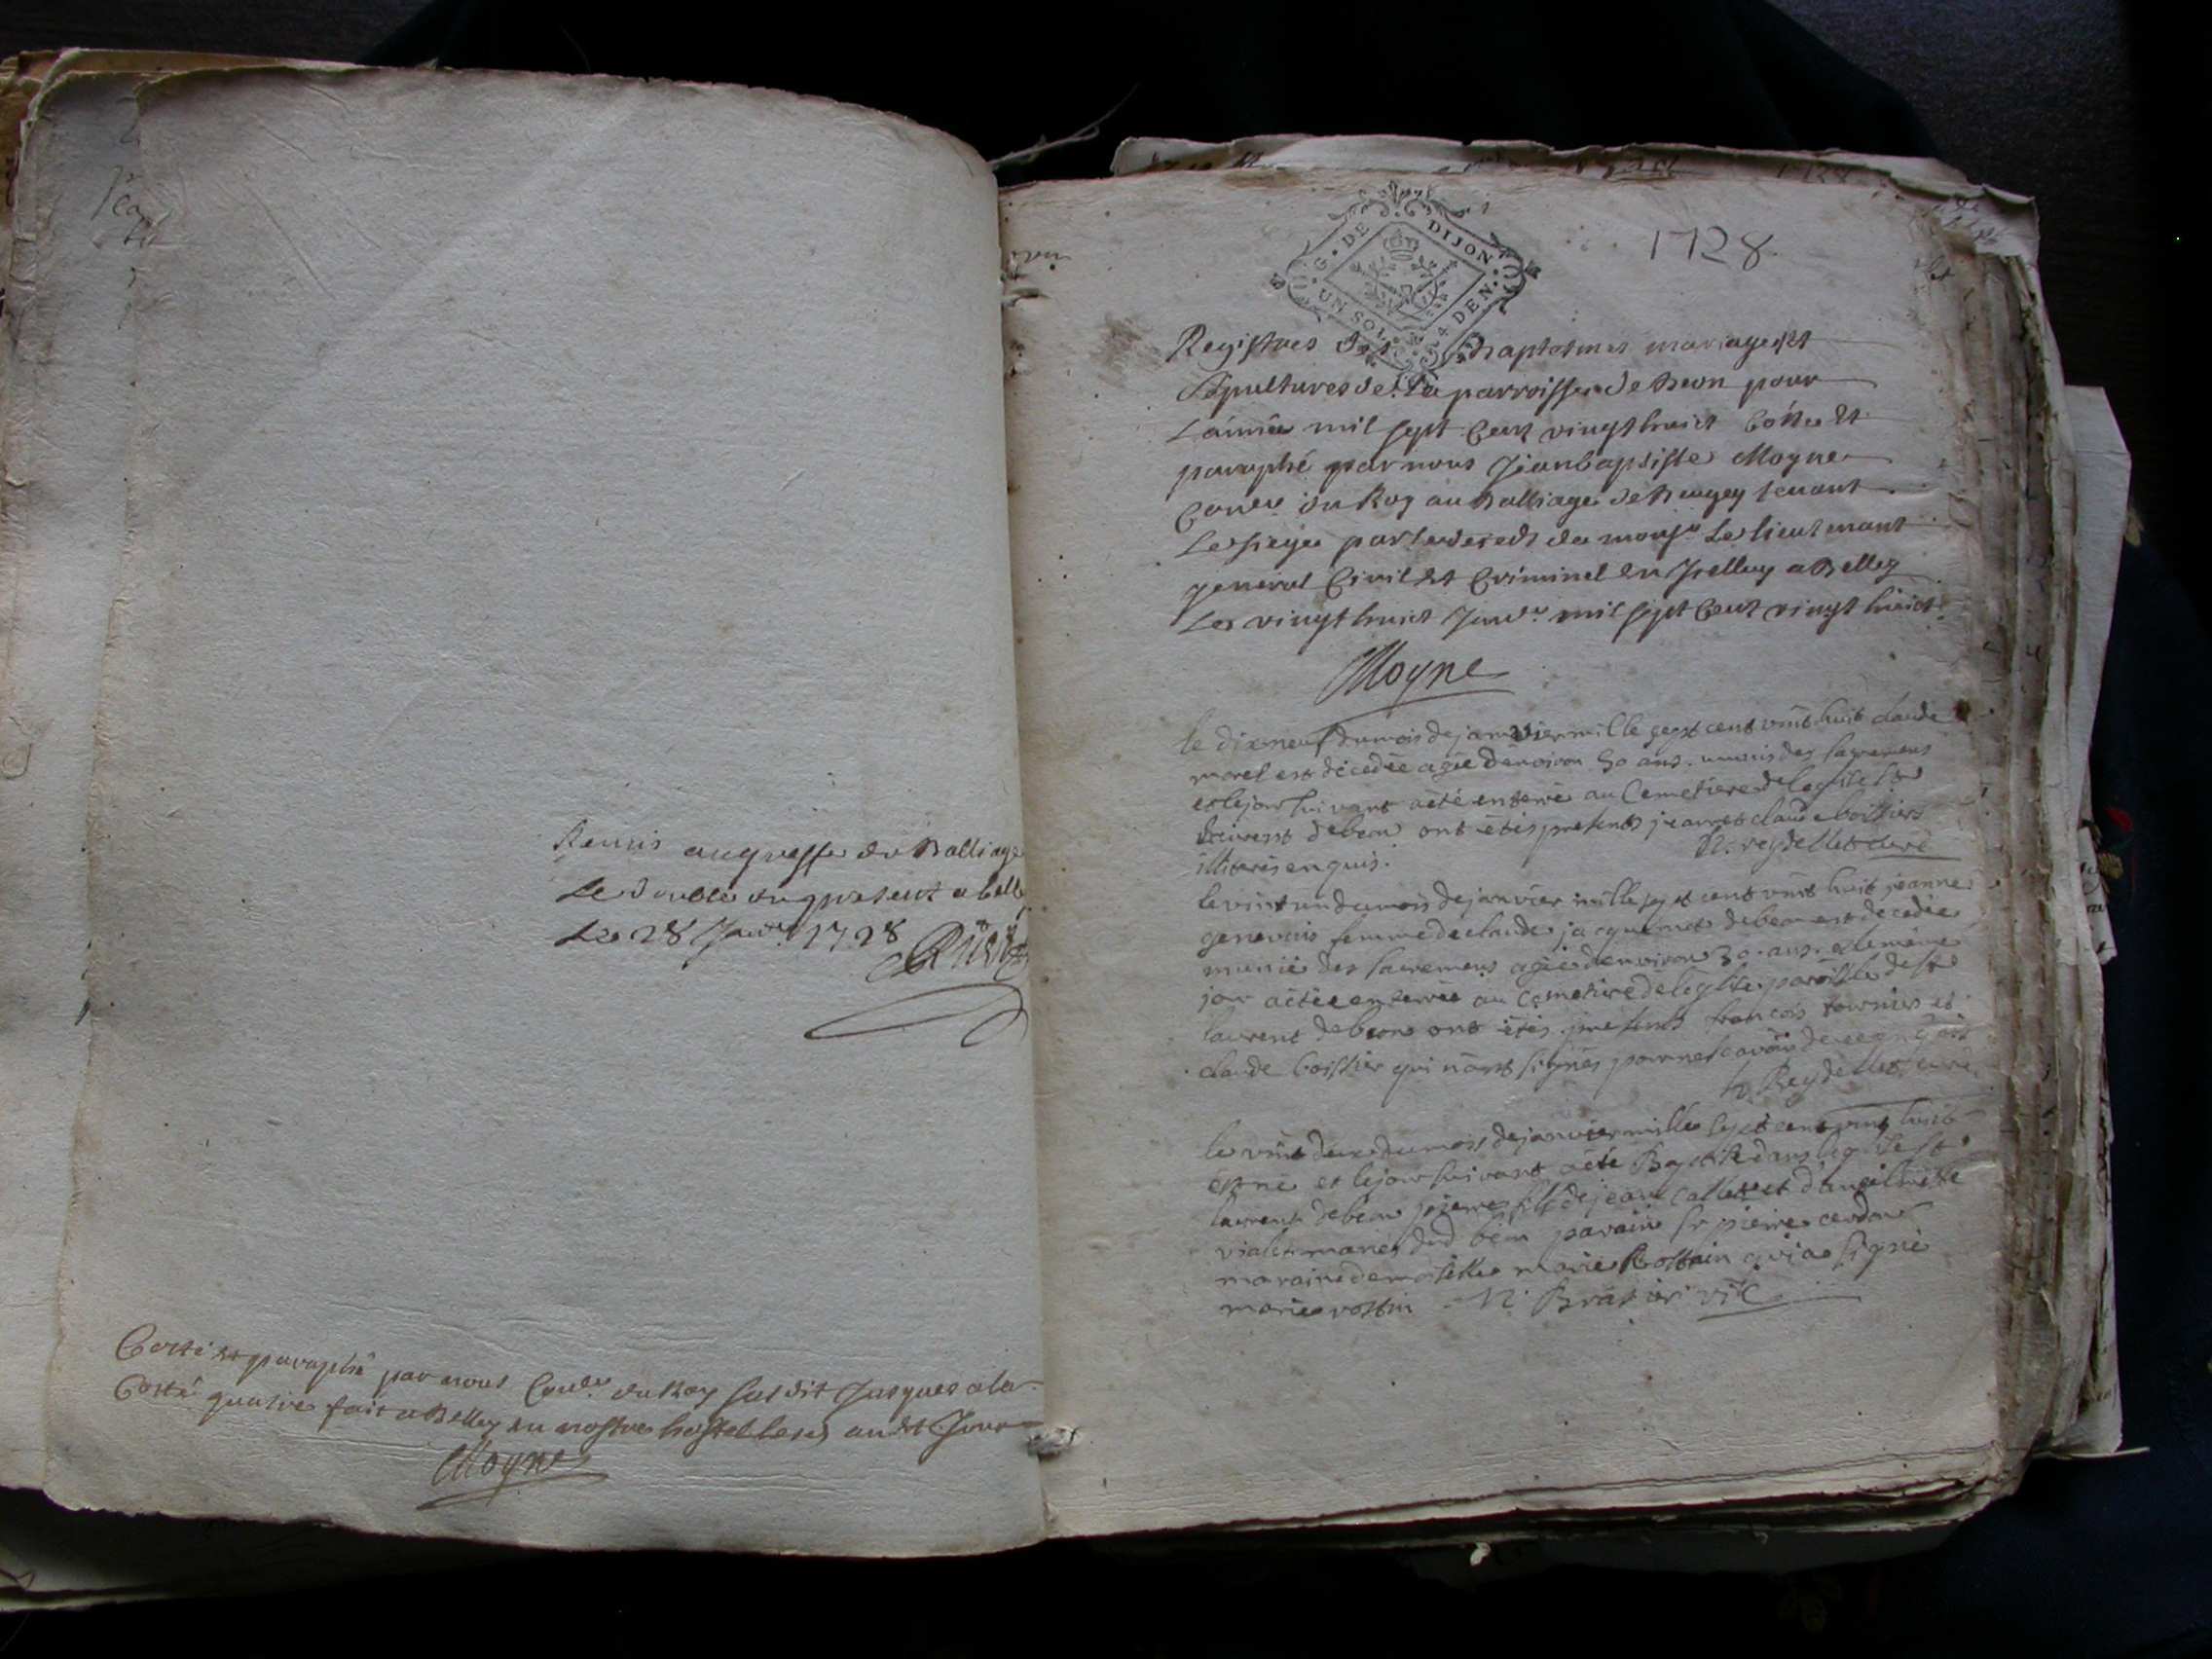 Remis au greffe du Balliage
Le double du present a belle
Le 28 Janv.r 1728
Cotté et paraphé par nous Con.er du Roy susdit Jusques a la
Cotte quatre fait a Belley en nostre hostel lesd an et Jour
Moyne
1728
G. DE DIJON
UN SOL 4 DEN.
Registres des Baptesmes mariages et
Sepultures de La parroisse de Beon pour
L'année mil sept Cent vingt huict Cottée et
paraphé par nous Jeanbaptiste Moyne
Con.er du Roy au Balliage de Bugey tenant
Le siege par le deceds de mons.r Le lieutenant
general Civil et Criminel en Icelluy a Belley
Les vingt huict Janv.r mil sept Cent vingt huict
Moyne
le dixneuf du mois de janvier mille sept cent vint huit claude
morel est décédée agée denviron 50 ans. munis des sacremens
et le jour suivant a été enterré au Cemetiere de leglise
de beon ont étés presents jeanne claude boissier
illiterés enquis.
N. reydellet curé
le vint un du mois de janvier mille sept cent vint huit jeanne
genevois femme de claude jacquemet de beon est decedée
munie des sacremens agée denviron 30. ans. et le même
jour a étée enterrée au Cemetiere de l'eglise paroissle de st
laurent de beon ont étés presents françois tournier et
claude boissier qui n'ont signés pour ne scavoir de ce enquis
N. Reydellet curé
le vint deux du mois de janvier mille sept cent vint huit
est né et le jour suivant a été Baptisé dans leglise st
laurent de beon pierre fils de jean callet et d'
mariés dud beon parain sr pierre cerdon
maraine demoiselle marie Rostain qui a signé
marie rostin N. Brasier vic